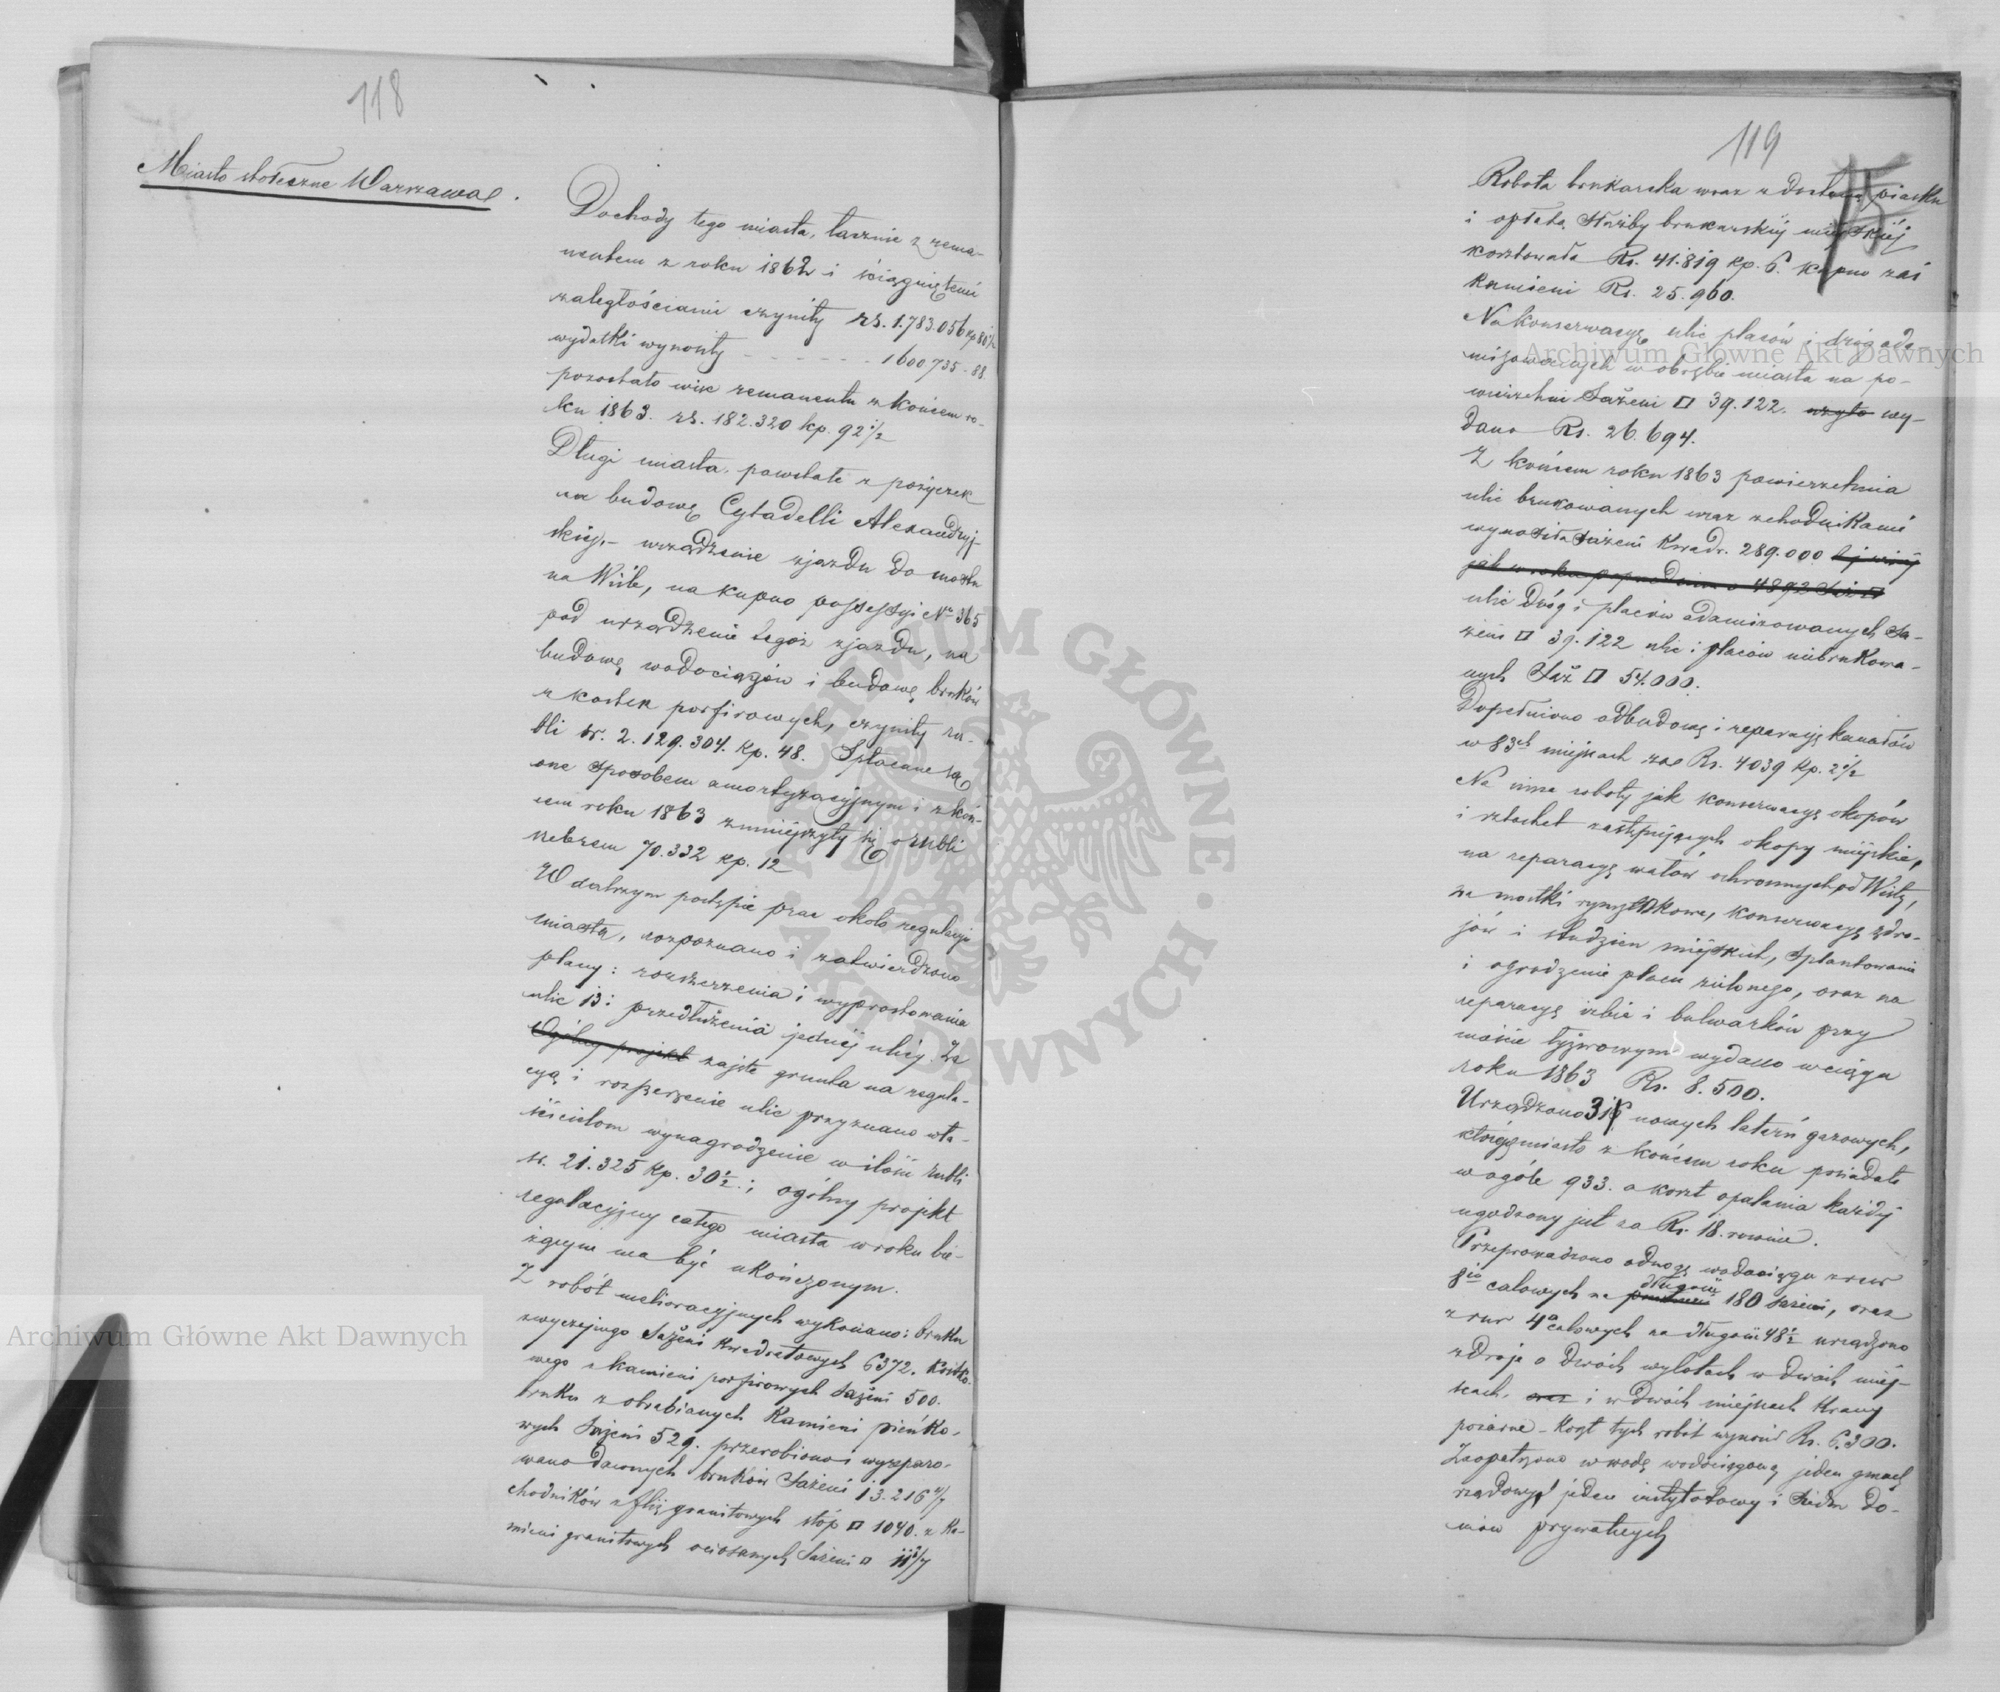 118
Miasto stołeczne Warszawa.
Dochody tego miasta, łącznie z rema-
nentem z roku 1862 i ściągniętemi
zaległościami czyniły rs. 1.783.056 kp 80½
wydatki wynosiły - - - - - - 1600735 - 88.
pozostało więc remanentu z końcem ro-
ku 1863. rs. 182.320 kp. 92½
Długi miasta, powstałe z pożyczek
na budowę Cytadelli Alexandryj-
skiej, - urządzenie zjazdu do mostu
na Wiśle, na kupno possessyi No 365
pod urządzenie tegoż zjazdu, na
budowę wodociągów i budowę bruków
z kostek porfirowych, czyniły ru-
bli sr. 2.129.304. kp. 48. Spłacane są
one sposobem amortyzacyjnym i z koń-
cem roku 1863 zmniejszyły się o rubli
srebrem 70.332 kp. 12
W dalszym postępie prac około regulacyi
miasta, rozpoznano i zatwierdzono
plany: rozszerzenia i wyprostowania
ulic 13: przedłużenia jednej ulicy. Za
Ogólny projekt zajęte grunta na regula-
cyą i rozszerzenie ulic przyznano wła-
ścicielom wynagrodzenie w ilości rubli
sr. 21.325 kp. 30½.; ogólny projekt
regulacyjny całego miasta w roku bie-
żącym ma być ukończonym.
Z robót melioracyjnych wykonano: bruku
zwyczajnego Sążeni kwadratowych 6372. kostko-
wego z kamieni porfirowych sążeni 500.
bruku z obrabianych kamieni pieńko-
wych Sążeni 529. przerobiono i wyrepero-
wano dawnych bruków Sążeni 13.216
chodników z fliz granitowych stóp □ 1040. z ka-
mieni granitowych ociosanych Sążeni □
119
15
Robota brukarska wraz z dostawą piasku
i opłatą służby brukarskiej miejskiej
kosztowała Rs. 41.819 kp. 6. kupno zaś
kamieni Rs. 25.960.
Na konserwacyę ulic placów i dróg ada-
mizowanych w obrębie miasta na po-
wierzchni Sążeni □ 39.122. użyto wy-
dano Rs. 26.694.
Z końcem roku 1863 powierzchnia
ulic brukowanych wraz z chodnikami
wynosiła Sążeni kwadr. 289.000 tj więcej
jak w roku poprzednim o 4892 Sąż □
ulic dróg i placów adamizowanych Są-
żeni □ 39.122 ulic i placów niebrukowa-
nych Sąż □ 54.000.
Dopełniono odbudowę i reperacyę kanałów
w 83ch miejscach za Rs. 4039 kp. 2½
Na inne roboty jak konserwacyę okopów
i sztachet zastępujących okopy miejskie,
na reperacyę wałów ochronnych od Wisły,
na mostki rynsztokowe, konserwacyę zdro-
jów i studzien miejskich, splantowanie
i ogrodzenie placu zielonego, oraz na
reperacyę izbic i bulwarków przy
moście łyżwowym wydano w ciągu
roku 1863 Rs. 8.500.
Urządzono 316 nowych latarń gazowych,
których miasto z końcem roku posiadało
w ogóle 933. a koszt opalania każdej
ugodzony jest za Rs. 18. rocznie.
Przeprowadzono odnogę wodociągu z rur
8io calowych na przestrzeni długości 180 sążeni, oraz
z rur 4o calowych na długość 48½ urządzono
zdroje o dwóch wylotach w dwóch miej-
scach, oraz i w dwóch miejscach krany
pożarne - Koszt tych robót wynosił Rs. 6.300.
Zaopatrzono w wodę wodociągową jeden gmach
rządowy, jeden instytutowy i siedm do-
mów prywatnych